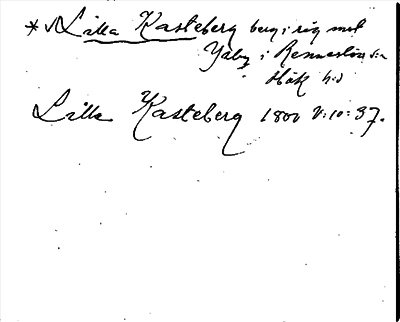 * Lilla Kasteberg berg i rör mot
Yaby i Rennes
Hök h:d
Lilla Kasteberg 1800 V:10:37.